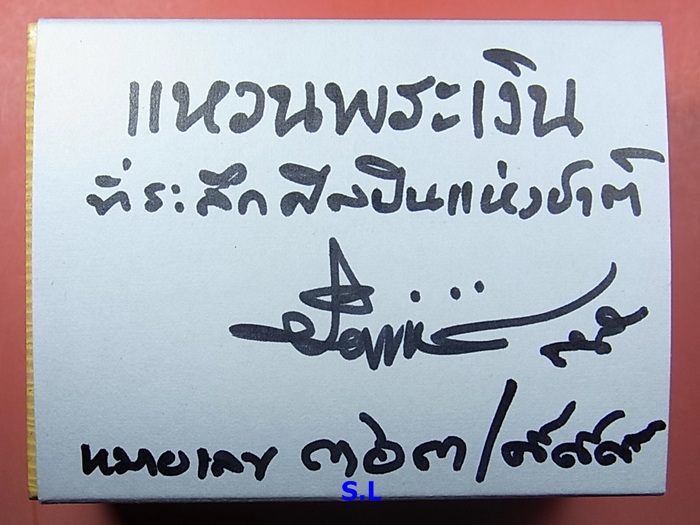 แหวนพระเงิน
ที่ระลึกศิลปินแห่งชาติ
หมายเลข ๓๖๓/๙๙๙
S.L